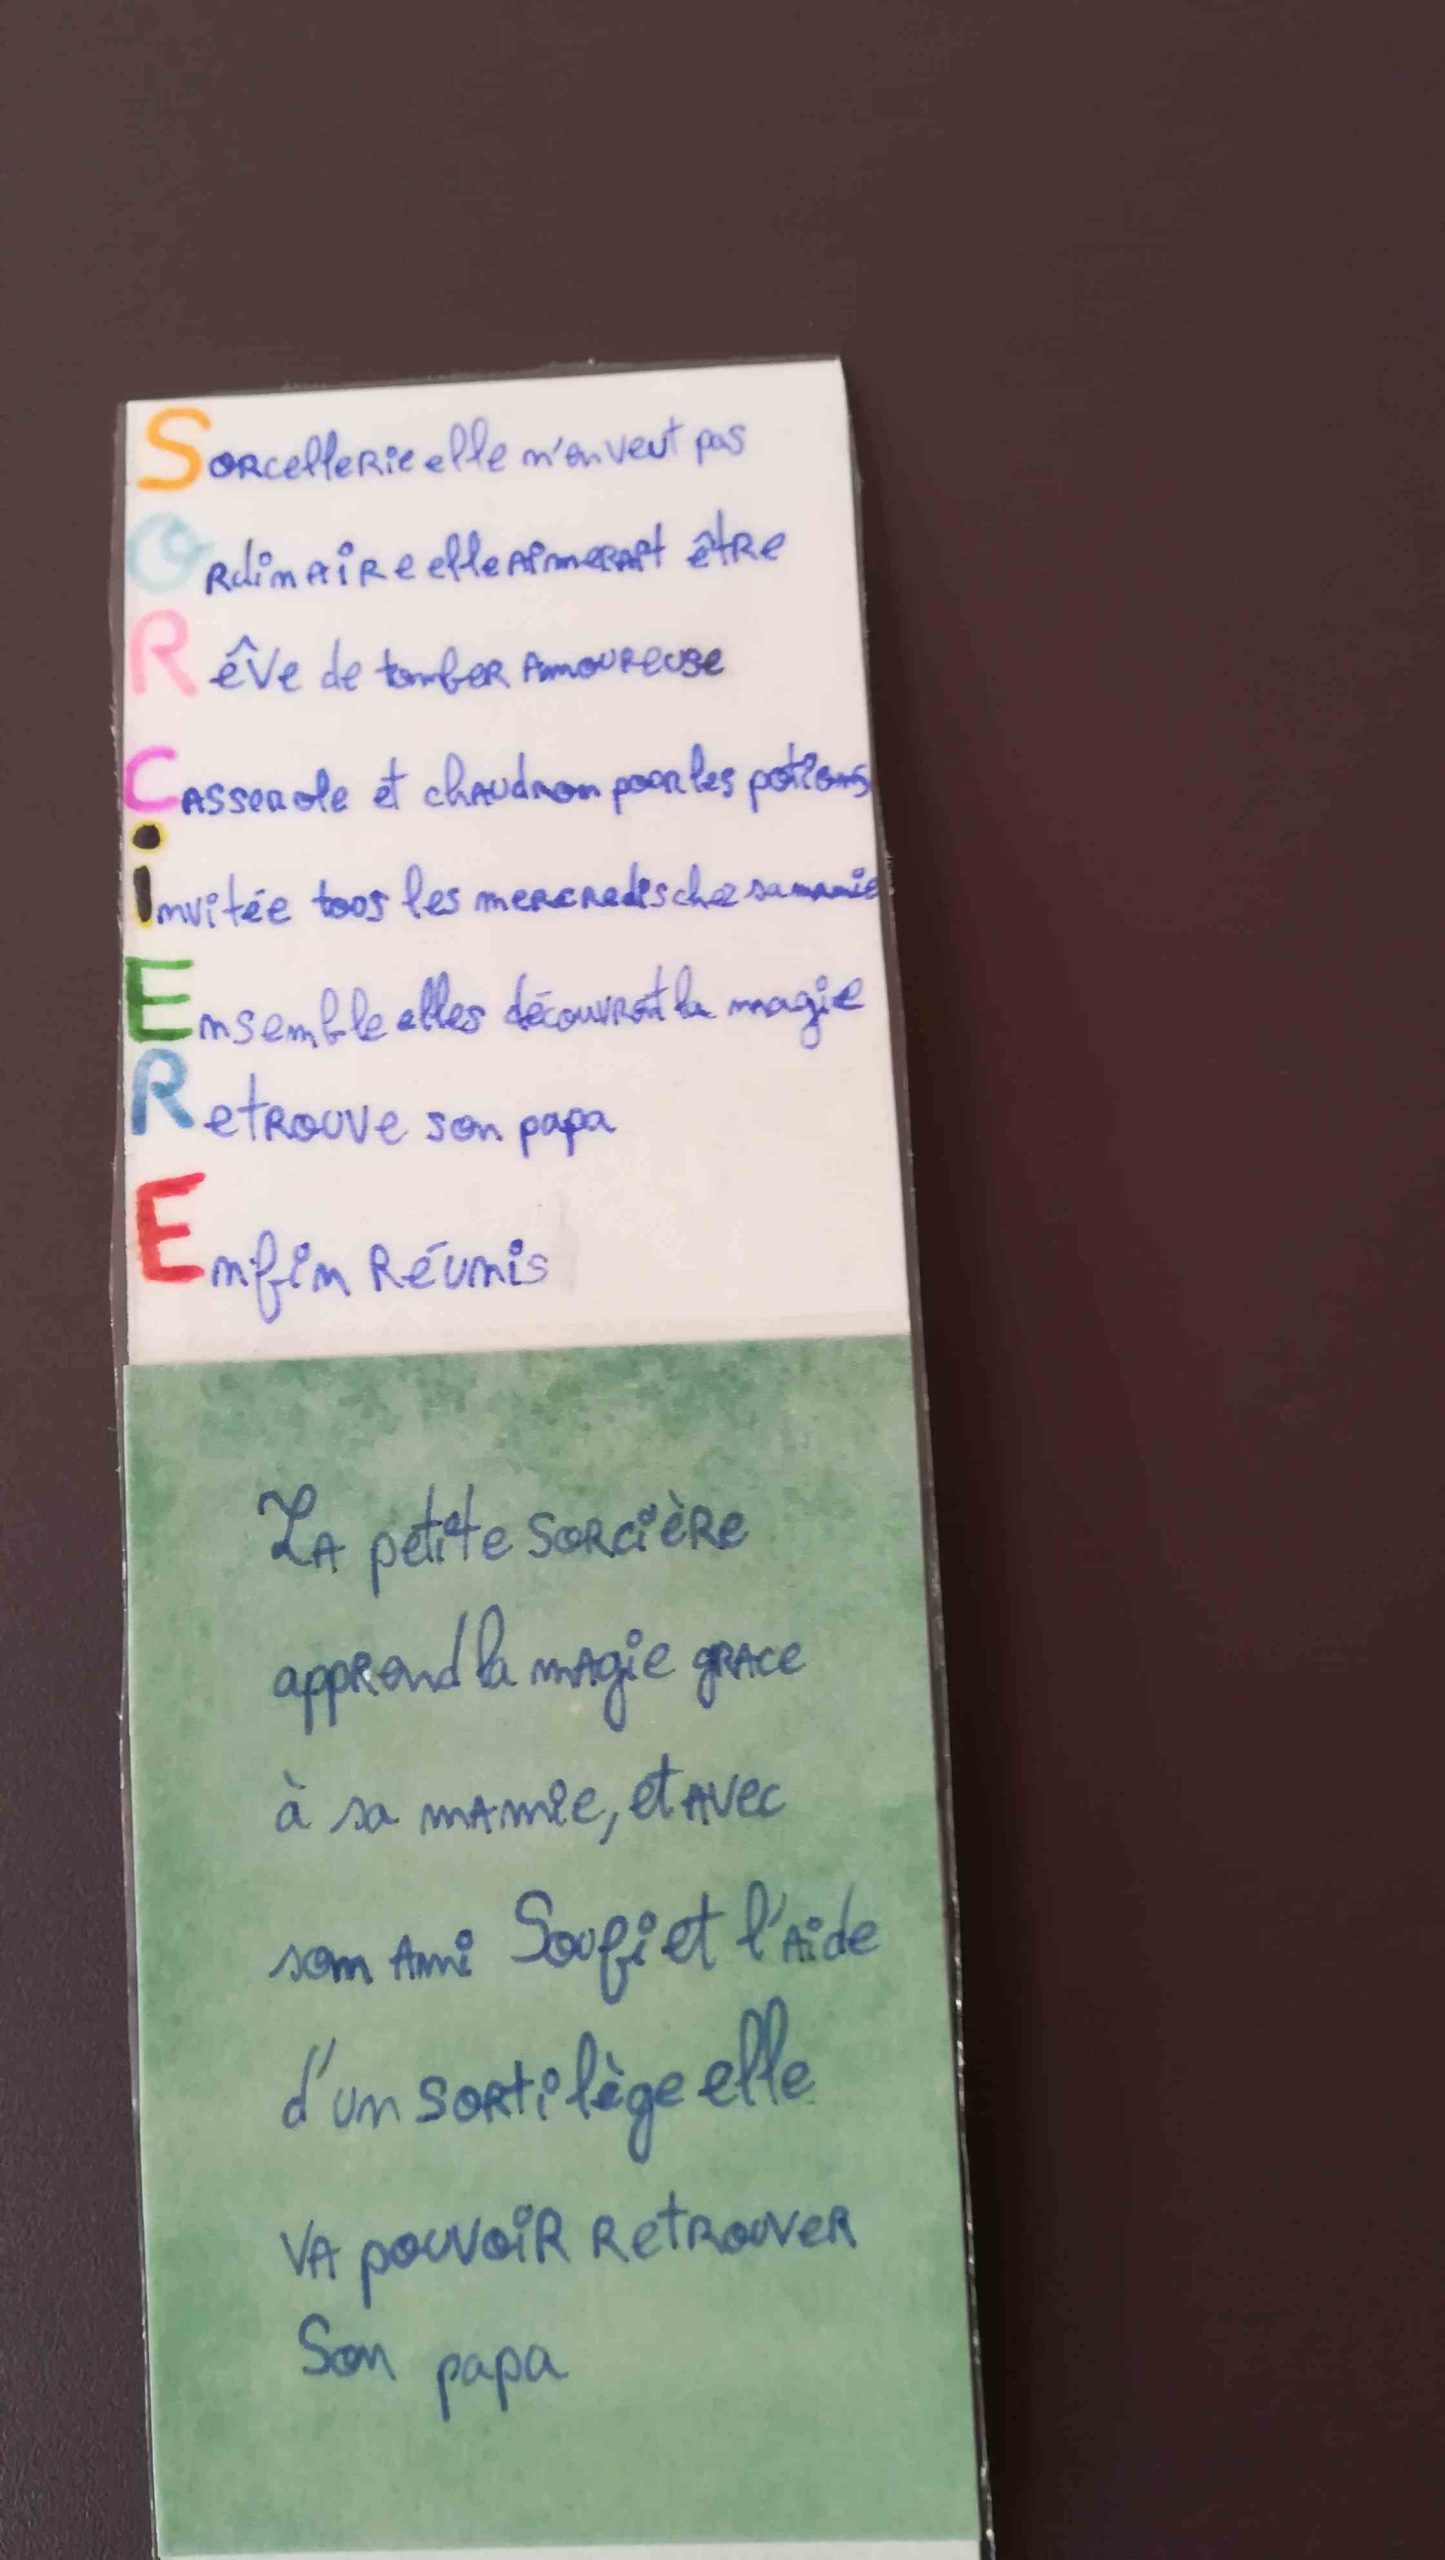 Sorcellerie elle n'en veut pas
Ordinaire elle aimerait être
Rêve de tomber amoureuse
Casserole et chaudron pour les potions
invitée tous les mercredis chez sa mamie
Ensemble elles découvrent la magie
Retrouve son papa
Enfin Réunis
La petite sorcière
apprend la magie grace
à sa mamie, et avec
son Ami Soufi et l'aide
d'un sortilège elle
va pouvoir retrouver
Son papa